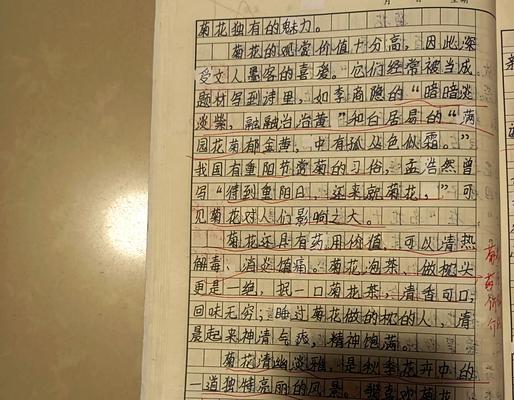 菊花独有的魅力。
菊花的观赏价值十分高，因此深
受文人墨客的喜爱。它们经常被当成
题材写到诗里，如李商隐的“暗暗淡
淡紫，融融冶冶黄”和白居易的“满
园花菊郁金黄，中有孤丛色似霜。”
我国有重阳节赏菊的习俗，孟浩然曾
写“待到重阳日，还来就菊花，”可
见菊花对人们影响之大。
菊花还具有药用价值，可以清热
解毒、消炎镇痛。菊花泡茶、做枕头
更是一绝，抿一口菊花茶，清香可口，
回味无穷；睡过菊花做的枕的人，清
晨起来神清气爽，精神饱满。
菊花清幽淡雅，是秋季花卉中的
一道独特亮丽的风景。我喜欢菊花